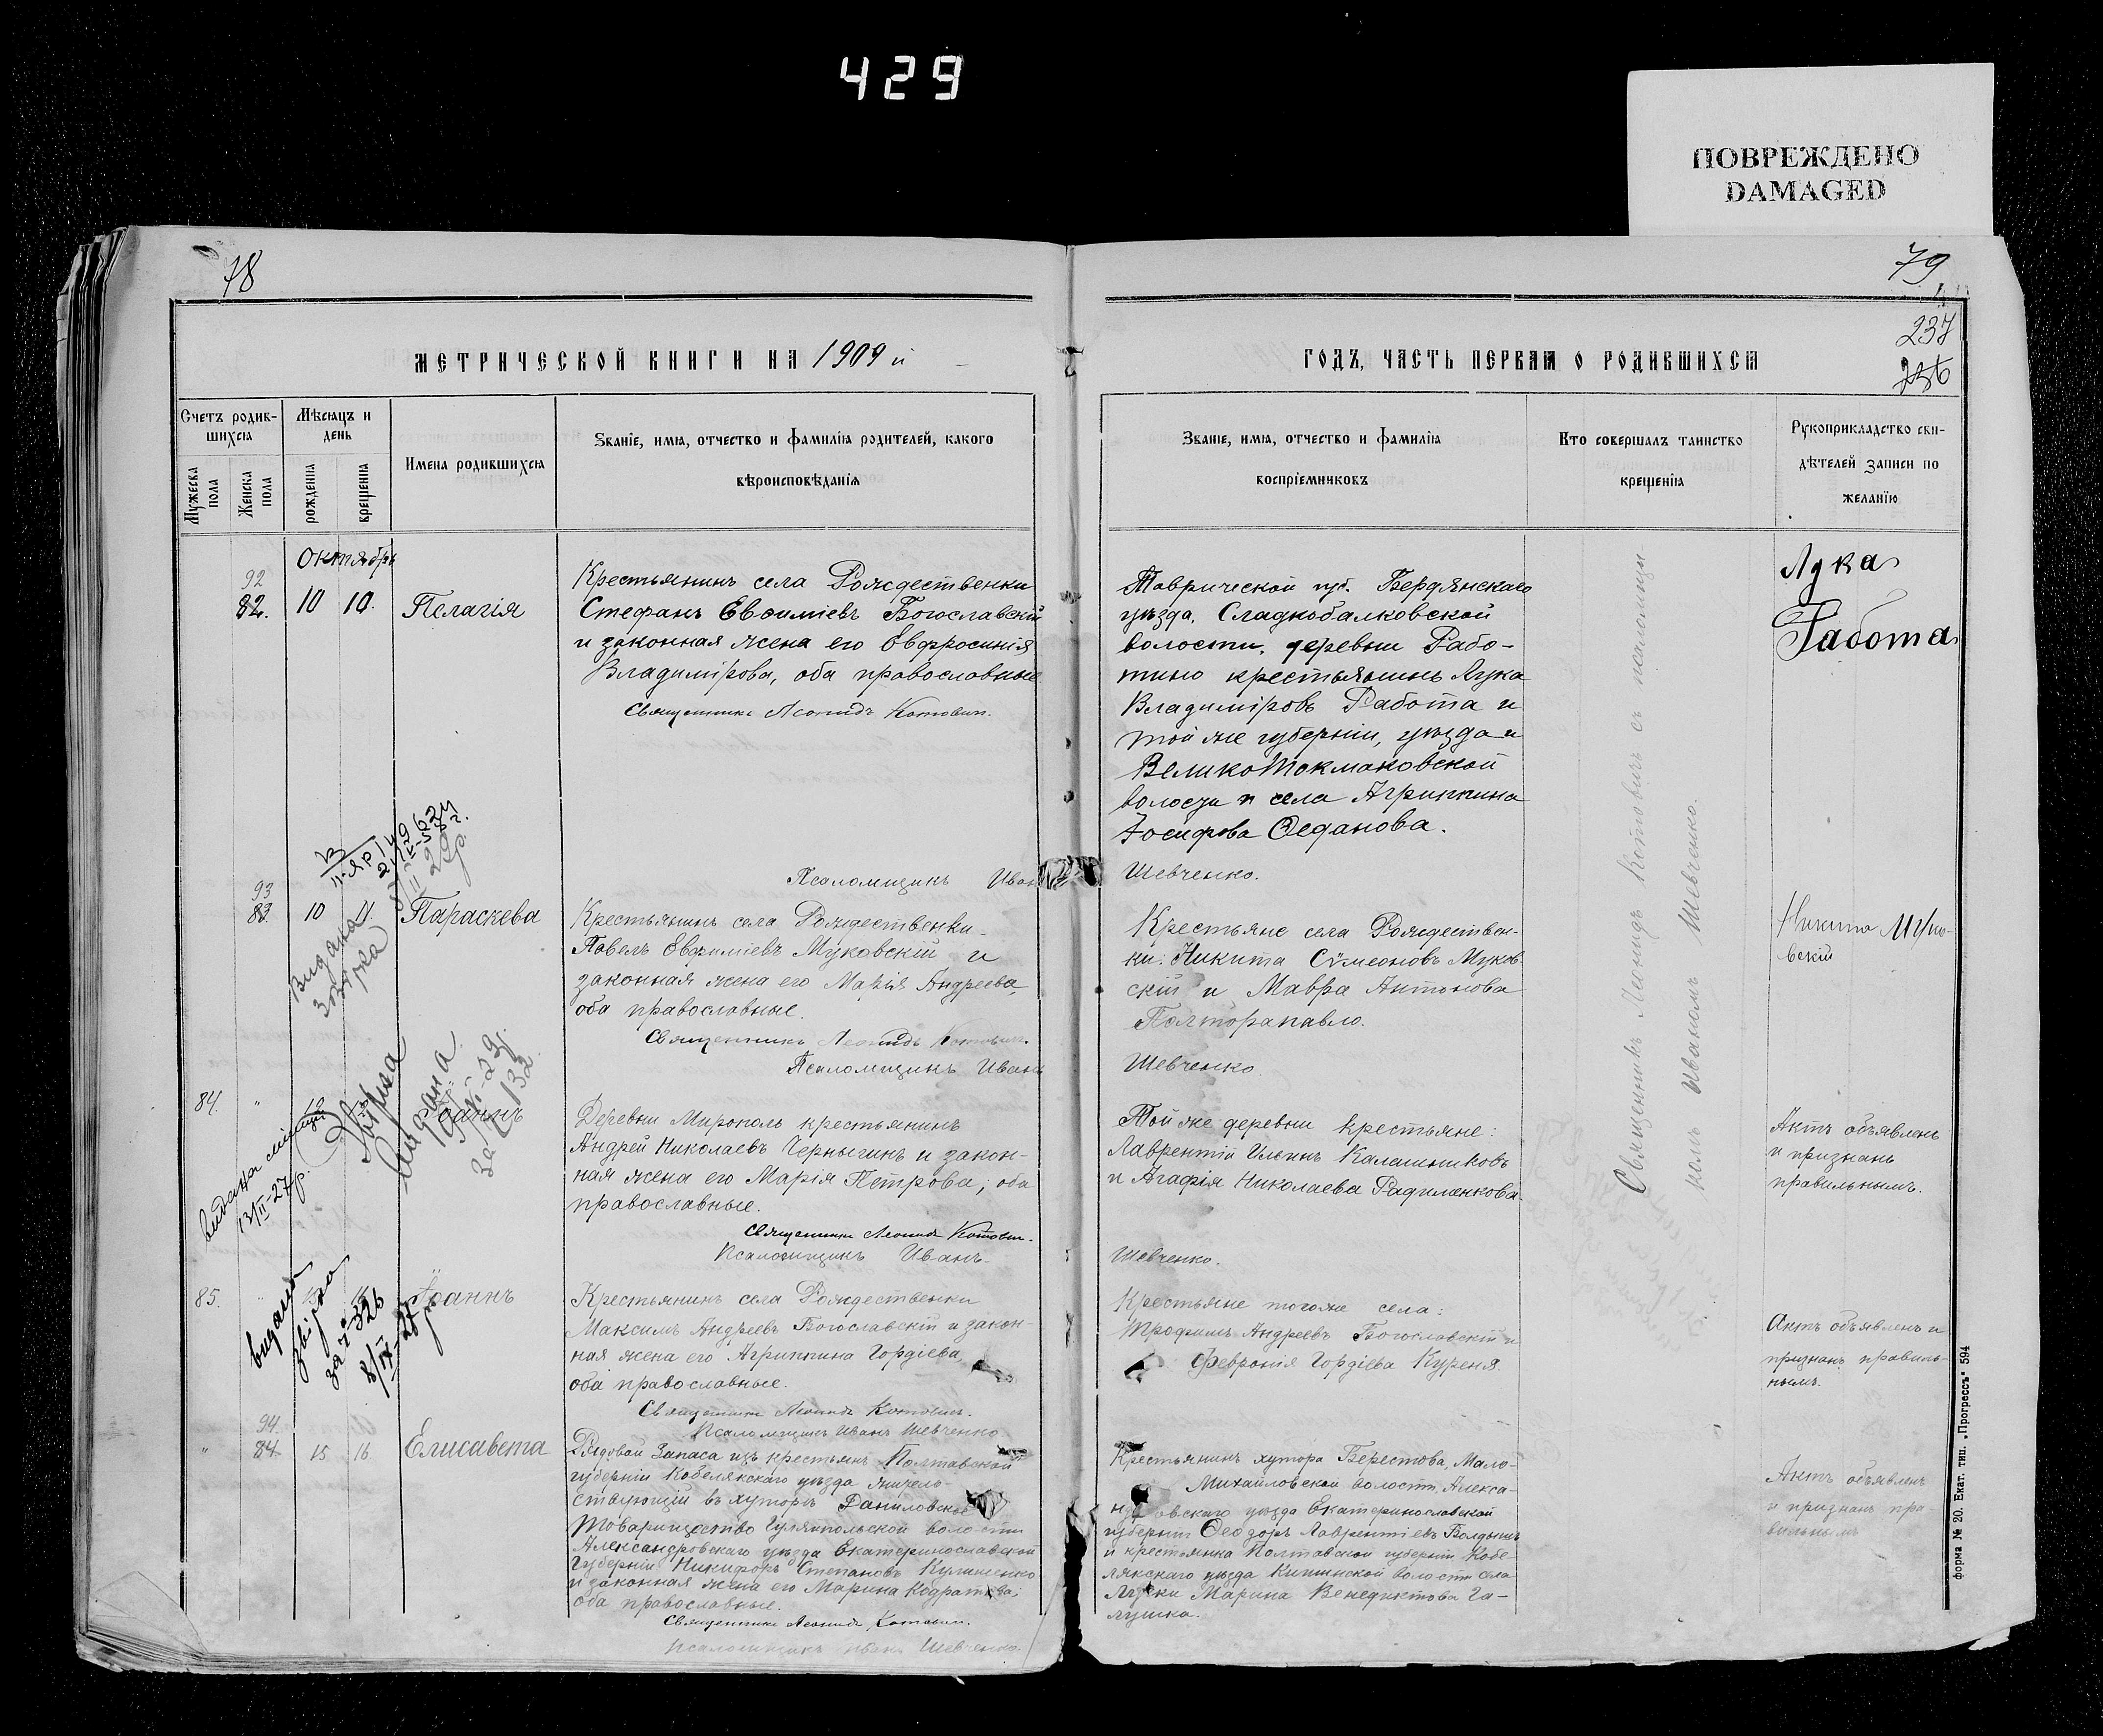 429
ПОВРЕЖДЕНО
DAMAGED
78
МЕТРИЧЕСКОЙ КНИГИ НА 1909 й
Счетъ родив-
шихся
Мѣсяцъ и
день
Мужеска
пола
Женска
пола
рожденія
крещенія
Имена родившихся
Званіе, имя, отчество и фамилія родителей, какого
вѣроисповѣданія
Октябрь
92
82. 10 10. Пелагія
Крестьянинъ села Рождественки
Стефанъ Евѳиміевъ Богославскій
и законная жена его Евфросинія
Владимірова, оба православные
Священникъ Леонидъ Котовичъ.
Псаломщикъ Иванъ
93
83. 10 11. Параскева
Крестьянинъ села Рождественки
Павелъ Евѳиміевъ Муковскій и
законная жена его Марія Андреева,
оба православные.
Священникъ Леонидъ Котовичъ.
Псаломщикъ Иванъ
Видана
84. " Іоаннъ
Деревни Мирополь крестьянинъ
Андрей Николаевъ Чернычинъ и закон-
ная жена его Марія Петрова; оба
православные.
Священникъ Леонидъ Котовичъ.
Псаломщикъ Иванъ
13/II-27р.
85. Іоаннъ
Крестьянинъ села Рождественки
Максимъ Андреевъ Богославскій и закон-
ная жена его Агриппина Гордіева,
оба православные.
Священникъ Леонидъ Котовичъ.
Псаломщикъ Иванъ Шевченко
видано
за № 326
94.
" 84 15 16. Елисавета
Рядовой Запаса изъ крестьянъ Полтавской
губерніи Кобелякскаго уѣзда жительствующій
въ хуторѣ Даниловское
Товарищество Гуляйпольской волости
Александровскаго уѣзда Екатеринославской
Губерніи Никифоръ Степановъ Кулишенко
и законная жена его Марина Кодратова;
оба православные.
Священникъ Леонидъ Котовичъ.
Псаломщикъ Иванъ Шевченко.
79
237
236
ГОДЪ, ЧАСТЬ ПЕРВАЯ О РОДИВШИХСЯ
Званіе, имя, отчество и фамилія
воспріемниковъ
Кто совершалъ таинство
крещенія
Рукоприкладство сви-
дѣтелей записи по
желанію
Таврической губ. Бердянскаго
уѣзда, Сладкобалковской
волости, деревни Рабо-
тино крестьянинъ Лука
Владиміровъ Работа и
той же губерніи, уѣзда и
Великотокмаковской
волости и села Агриппина
Іосифова Ѳеданова.
Шевченко.
Лука
Работа
Крестьяне села Рождествен-
ки: Никита Сѵмеоновъ Муков-
скій и Мавра Антонова
Полторапавло.
Шевченко.
Никита Муко-
вскій
Той же деревни крестьяне:
Лаврентій Ильинъ Калашниковъ
и Агафія Николаева Радиленкова.
Шевченко.
Актъ объявленъ
и признанъ
правильнымъ.
Крестьяне тогоже села:
Трофимъ Андреевъ Богославскій и
Февронія Гордіева Куреня.
Актъ объявленъ и
признанъ правиль-
нымъ.
Крестьянинъ хутора Берестова, Мало-
Михайловской волости, Алекса-
ндровскаго уѣзда Екатеринославской
губерніи Ѳеодоръ Лаврентіевъ Болдынъ
и крестьянка Полтавской губерніи Кобе-
лякскаго уѣзда Кишинской волости села
Лучки Марина Венедиктова Га-
лушка.
Актъ объявленъ
и признанъ пра-
вильнымъ
Священникъ Леонидъ Котовичъ съ псаломщи-
комъ Иваномъ Шевченко.
форма № 20. Екат. тип. „Прогрессъ“ 594